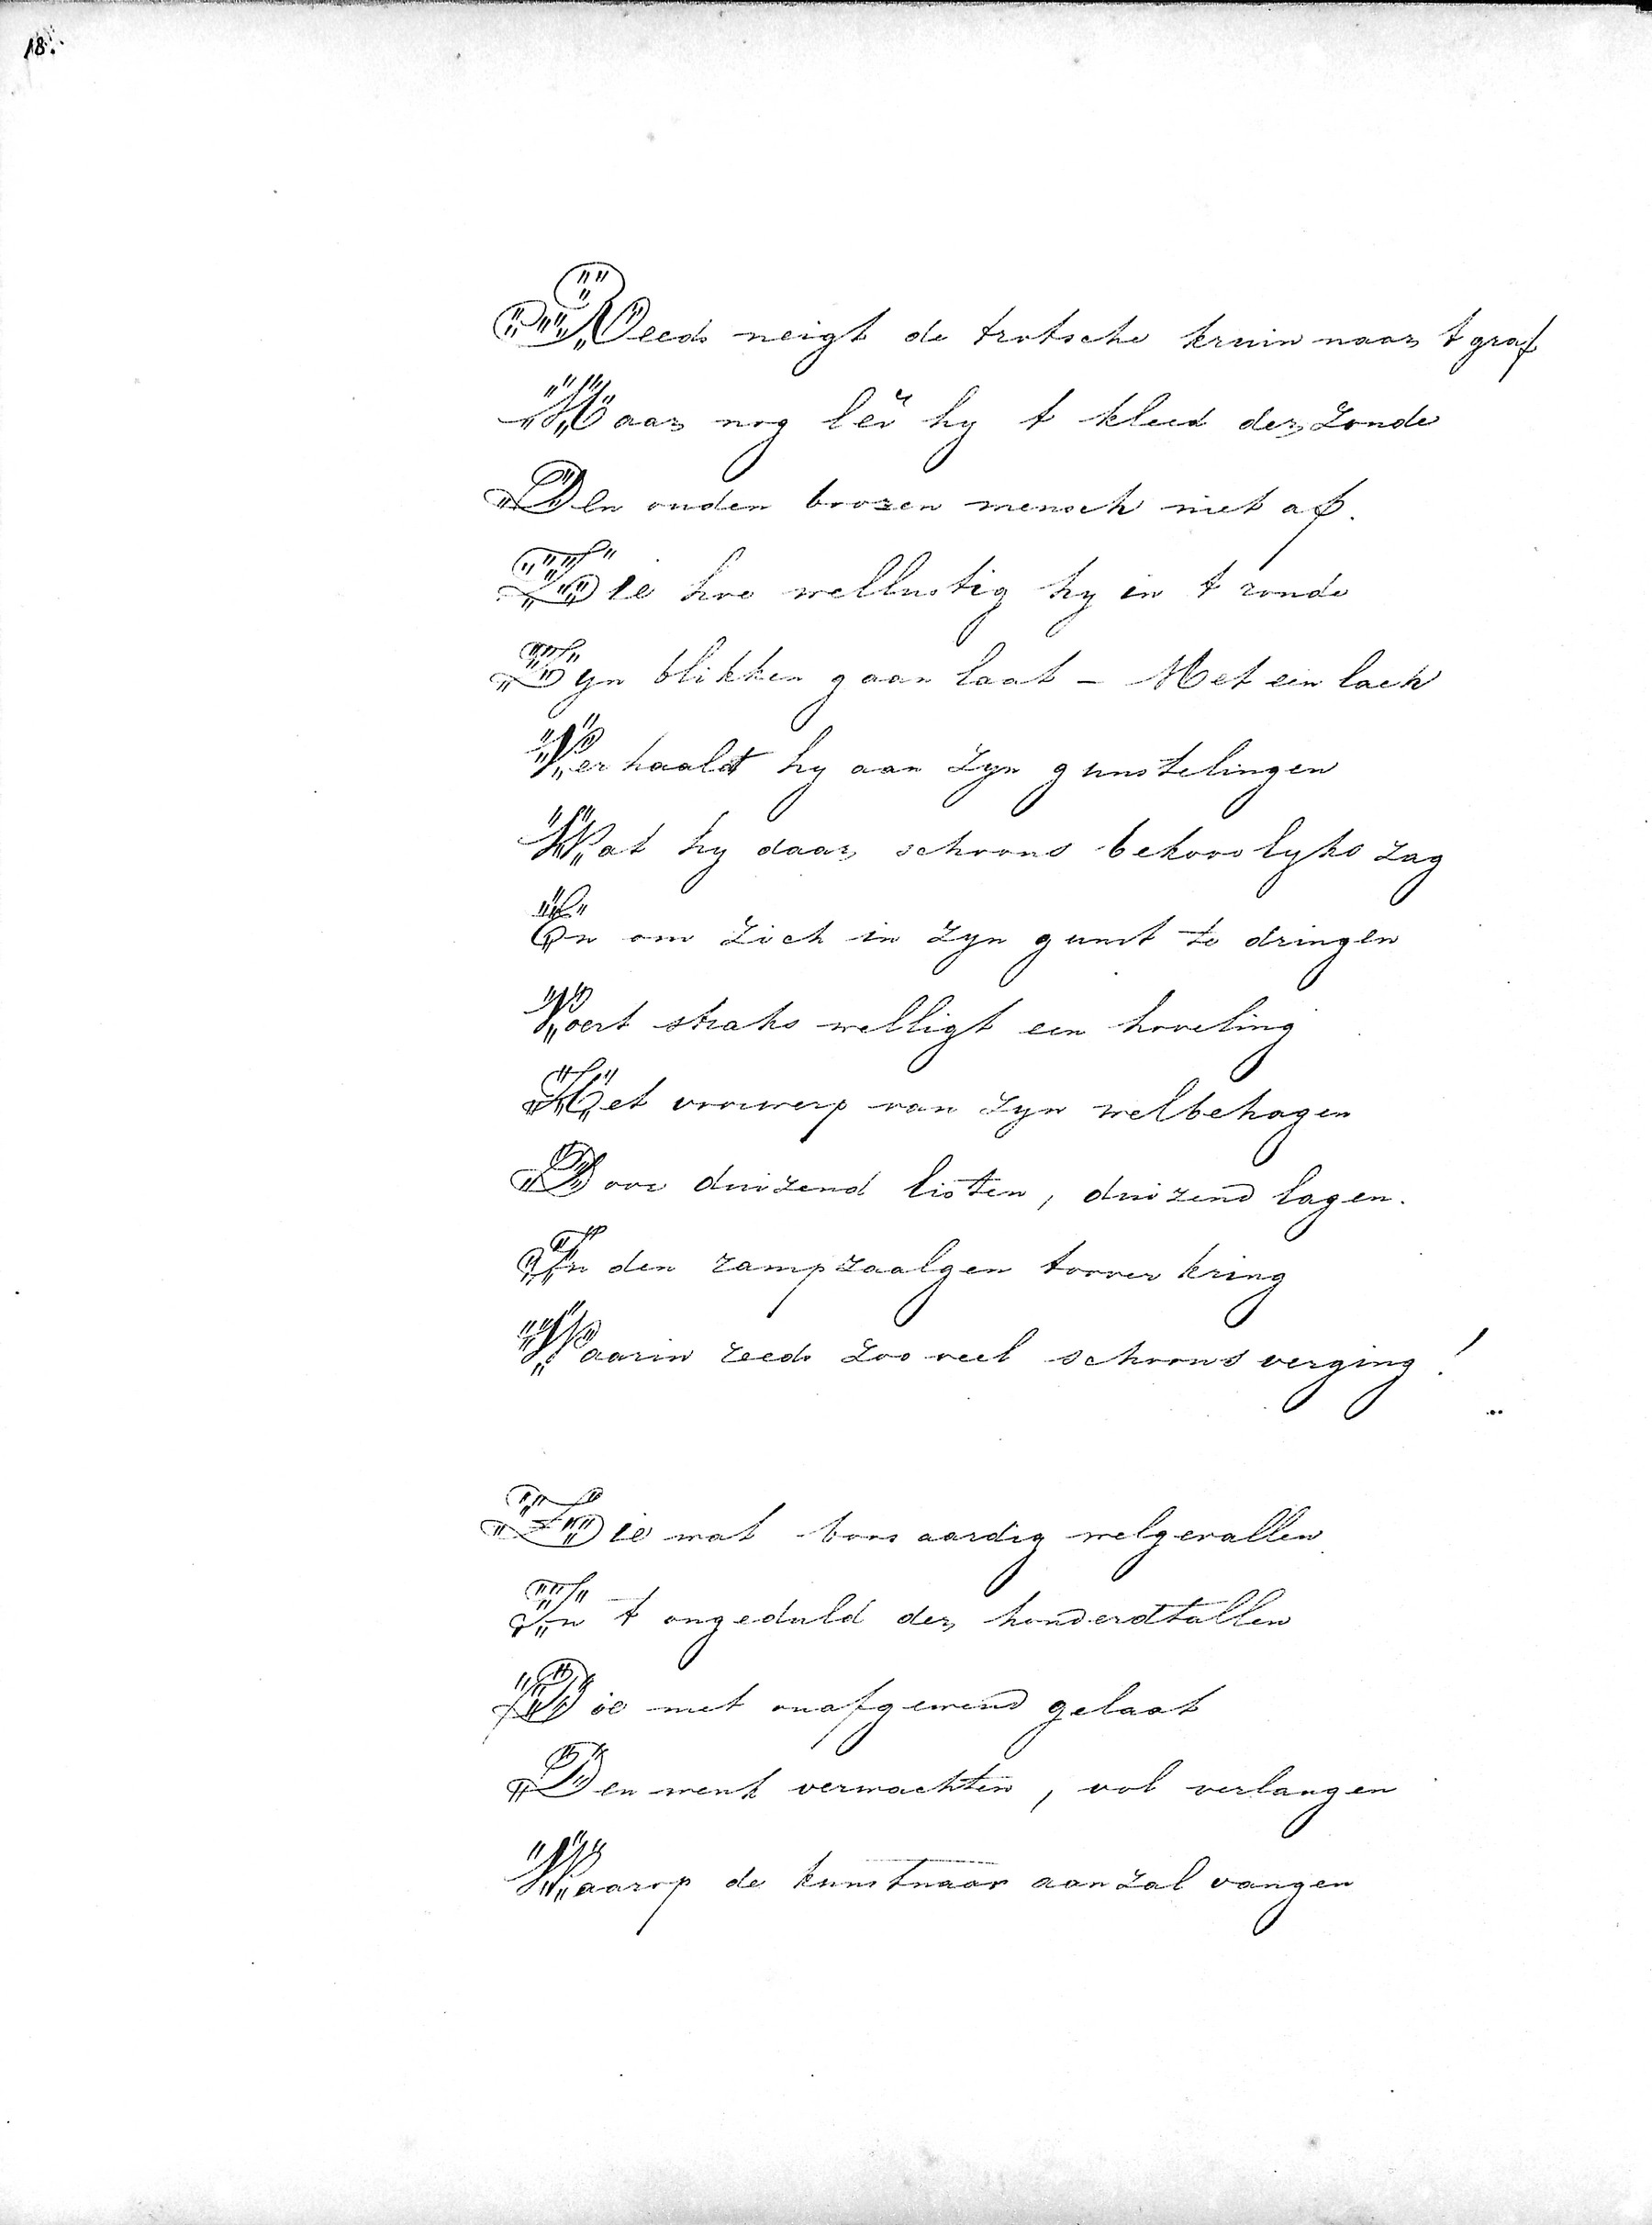 18.
Reeds neigt de trotsche kruin naar t graf
Maar nog leî hy t kleed der zonde
Den ouden broozen mensch niet af.
Zie hoe wellustig hy in t ronde
Zyn blikken gaan laat – Met een lach
Verhaald hy aan zyn gunstelingen
Wat hy daar schoons bekoorlyks zag
En om zich in zyn gunst te dringen
Voert straks welligt een hoveling
Het voorwerp van zyn welbehagen
Door duizend listen, duizend lagen.
In den rampzaalgen toover kring
Waarin reeds zoo veel schoons verging!
Zie wat boosaardig welgevallen
In t ongeduld der honderdtallen
Die met onafgewend gelaat
Den wenk verwachten, vol verlangen
Waarop de kunstnaar aan zal vangen